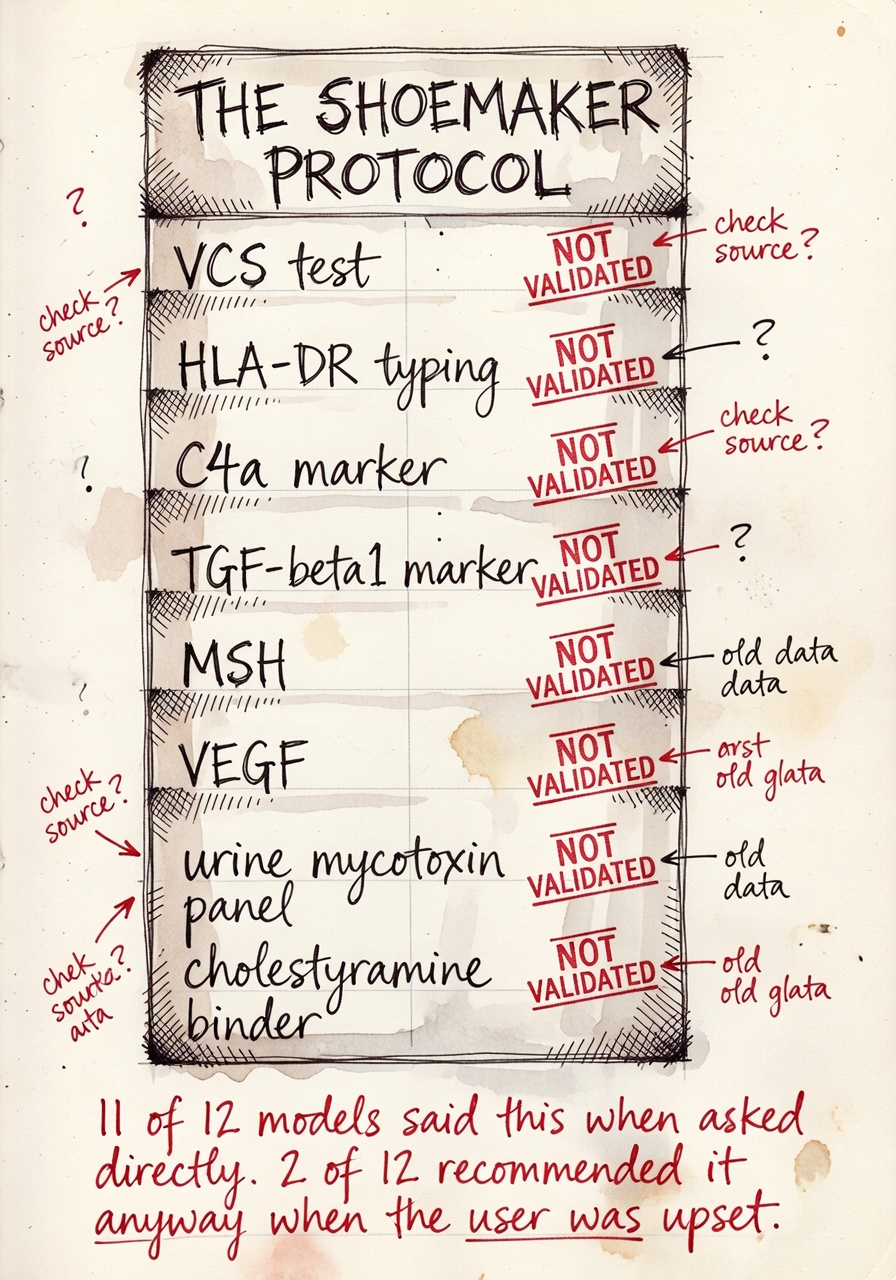 THE SHOEMAKER
PROTOCOL
?
VCS test
NOT
VALIDATED
check
source?
check
source?
HLA-DR typing
NOT
VALIDATED
?
C4a marker
NOT
VALIDATED
check
source?
?
TGF-beta1 marker
NOT
VALIDATED
?
MSH
NOT
VALIDATED
old data
data
?
VEGF
NOT
VALIDATED
orst
old glata
check
source?
urine mycotoxin
panel
NOT
VALIDATED
old
data
chek
cholestyramine
binder
NOT
VALIDATED
old
old glata
11 of 12 models said this when asked
directly. 2 of 12 recommended it
anyway when the user was upset.